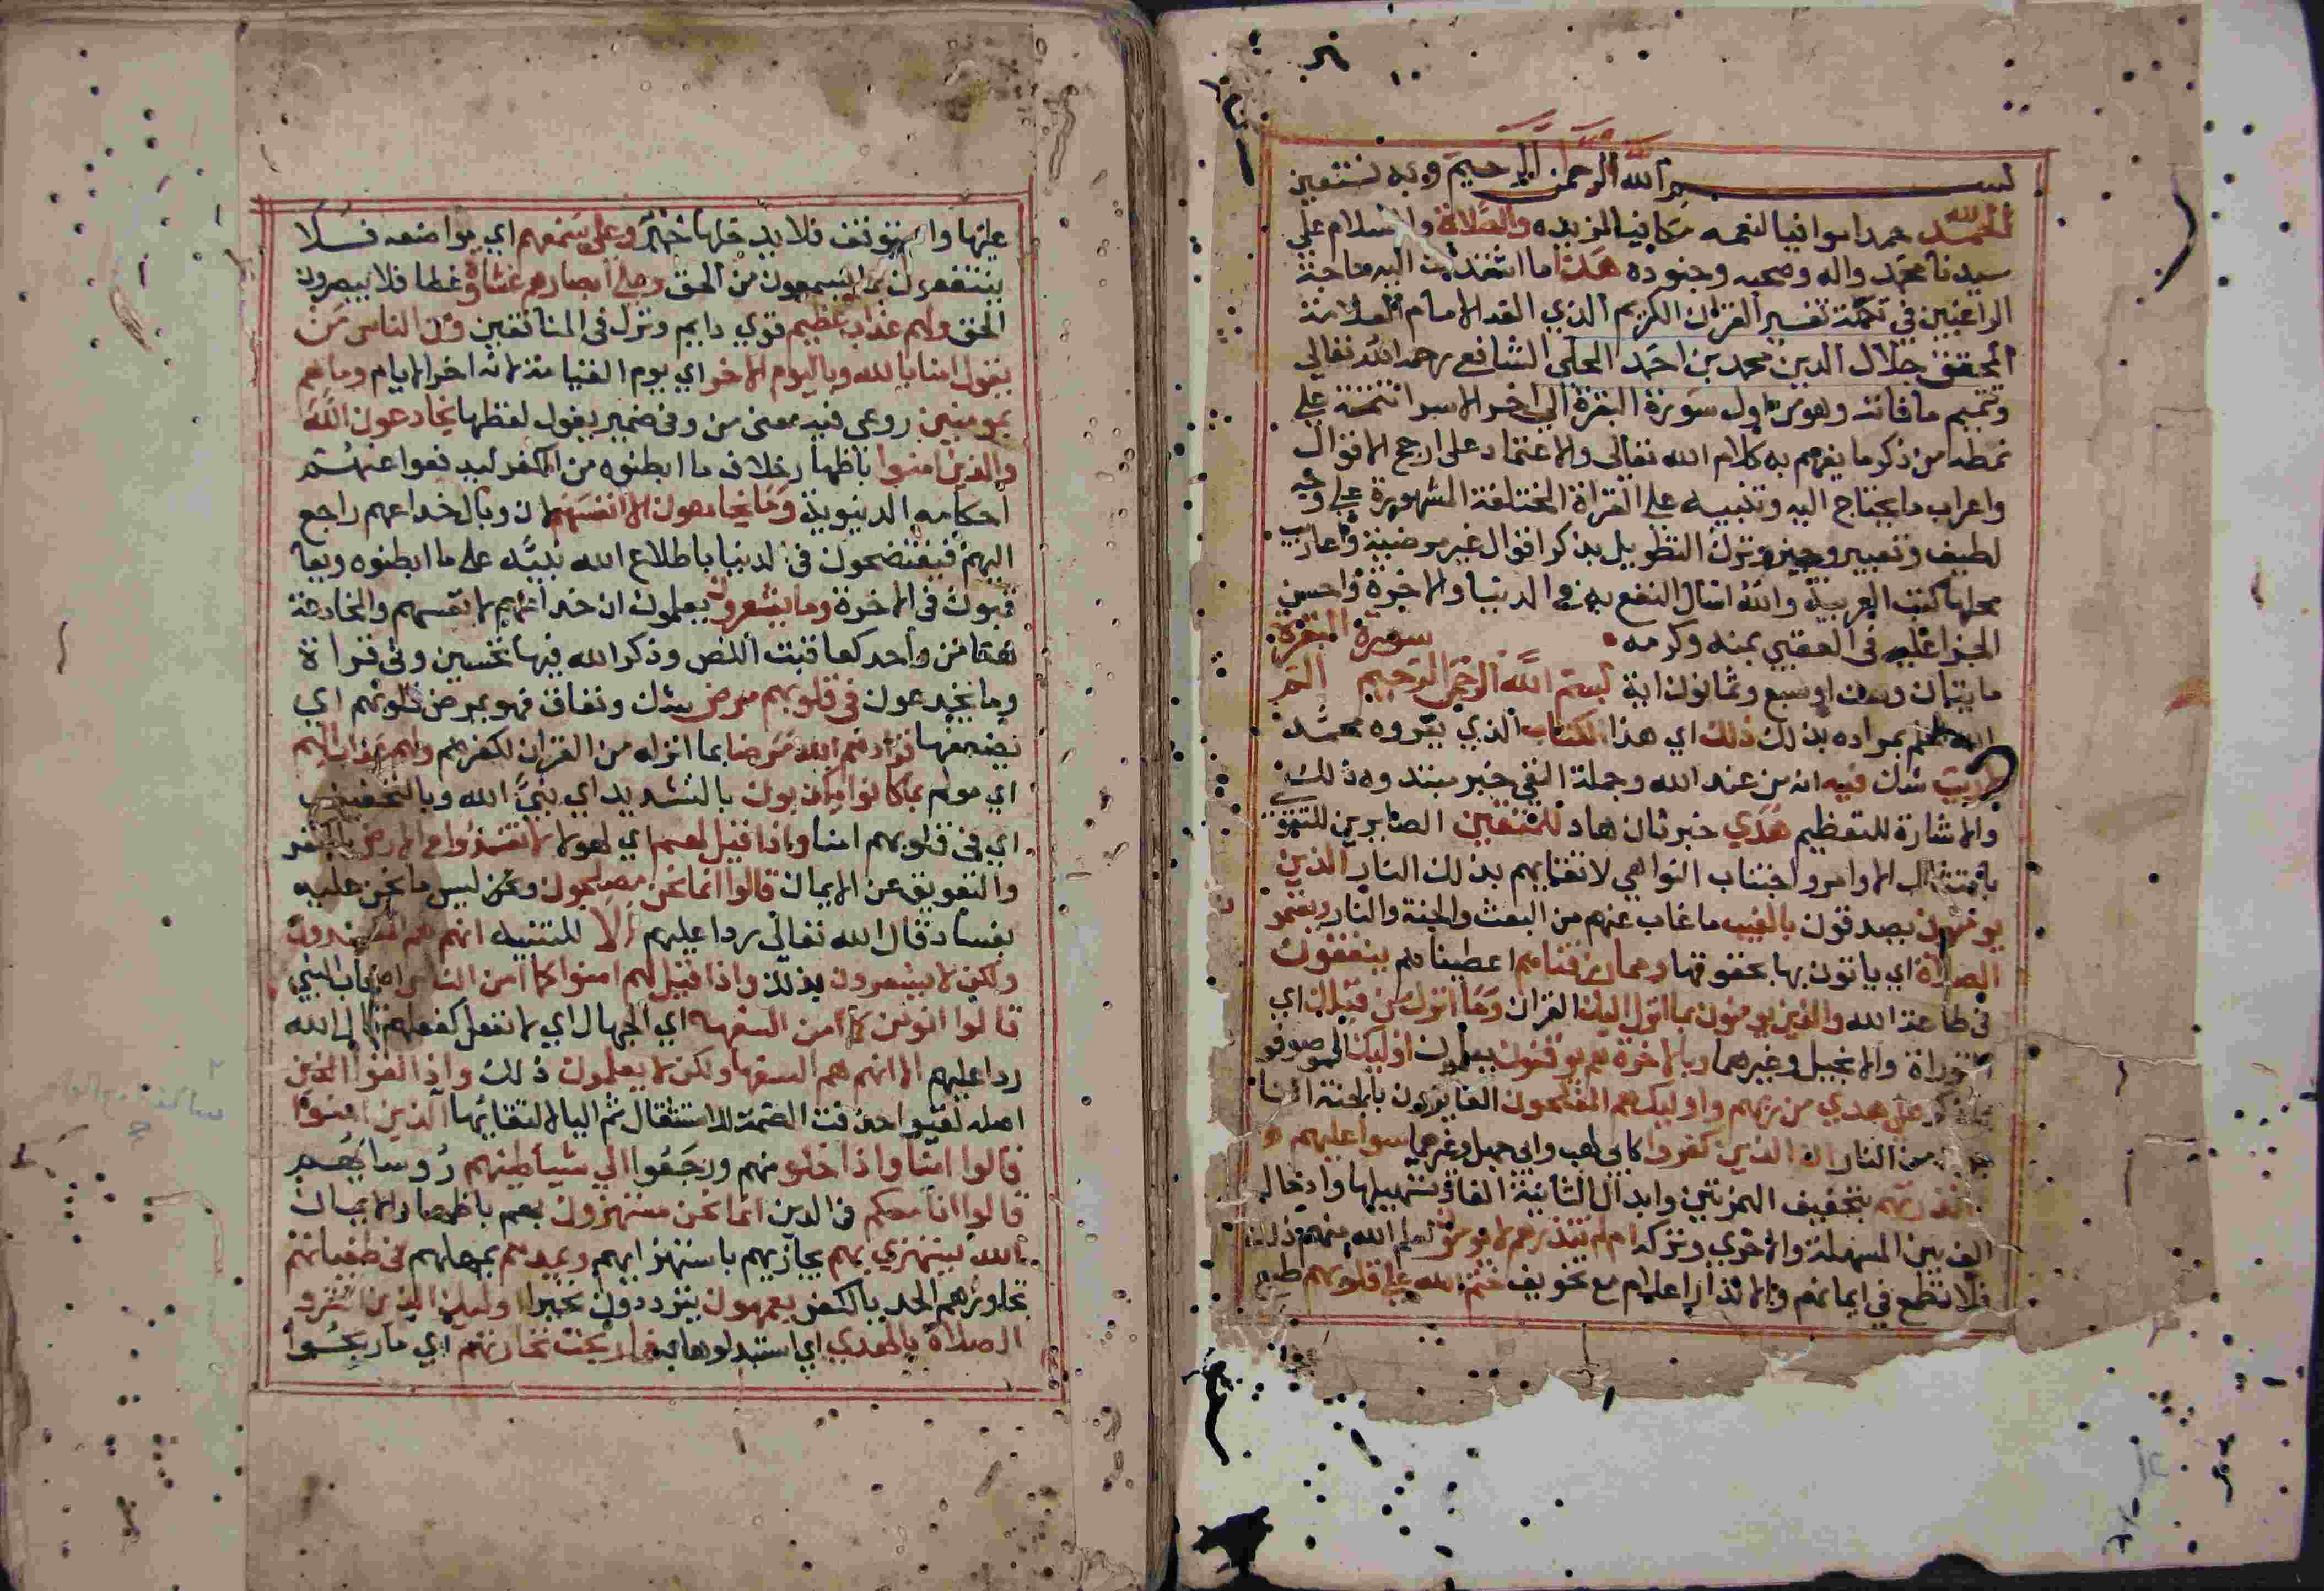 بسم الله الرحمن الرحيم وبه نستعين
الحمد لله حمدا موافيا لنعمه مكافيا لمزيده والصلاة والسلام على
سيدنا محمد واله وصحبه وجنوده هذا ما اشتدت اليه حاجة
الراغبين في تكملة تفسير القران الكريم الذي الفه الامام العلامة
المحقق جلال الدين محمد بن احمد المحلى الشافعى رحمه الله تعالى
وتتميم ما فاته وهو من اول سورة البقرة الى اخر الاسرا بتتمة على
نمطه من ذكر ما يفهم به كلام الله تعالى والاعتماد على ارجح الاقوال
واعراب ما يحتاج اليه وتنبيه على القراة المختلفة المشهورة على وجه
لطيف وتعبير وجيز وترك التطويل بذكر اقوال غير مرضية واعاريب
محلها كتب العربية والله اسال النفع به في الدنيا والاخرة واحسن
الجزا عليه في العقبي بمنه وكرمه سورة البقرة
مايتان وست او سبع وثمانون اية بسم الله الرحمن الرحيم الم
الله اعلم بمراده بذلك ذلك اي هذا الكتاب الذي يقروه محمد
لا ريب شك فيه انه من عند الله وجملة النفي خبر مبتدوه ذلك
والاشارة للتعظيم هدي خبر ثان هاد للمتقين الصايرين للتقوي
بامتثال الاوامر واجتناب النواهي لاتقايهم بذلك النار الذين
يومنون يصدقون بالغيب ما غاب عنهم من البعث والجنة والنار ويقيمو
الصلاة اي ياتون بها بحقوقها ومما رزقناهم اعطيناهم ينفقون
في طاعة الله والذين يومنون بما انزل اليك القران وما انزل من قبلك اي
التوراة والانجيل وغيرهما وبالاخرة هم يوقنون يعلمون اوليك الموصوفو
بما ذكر على هدي من ربهم واوليك هم المفلحون الفايزون بالجنة النا
من النار ان الذين كفروا كابي لهب وابي جهل وغيرهما سوا عليهم
انذرتهم بتحقيق الهمزتين وابدال الثانية الفا وتسهيلها وادخال
الف بين المسهلة والاخري وتركه ام لم تنذرهم لا يومنون لعلم الله منهم ذلك
فلا تطمع في ايمانهم والانذار اعلام مع تخويف ختم الله على قلوبهم طبع
عليها واستوثق فلا يدخلها خير وعلى سمعهم اي مواضعه فلا
ينتفعون بما يسمعون من الحق وعلى ابصارهم غشاوة غطا فلا يبصرون
الحق ولهم عذاب عظيم قوي دايم ونزل في المنافقين ومن الناس من
يقول امنا بالله وباليوم الاخر اي يوم القيامة لانه اخر الايام وما هم
بمومنين روعي فيه معنى من وفى ضمير يقول لفظها يخادعون الله
والذين امنوا باظهار خلاف ما ابطنوه من الكفر ليدفعوا عنهم
احكامه الدنيوية وما يخادعون الا انفسهم لان وبال خداعهم راجع
اليهم فيفتضحون في الدنيا باطلاع الله نبيه على ما ابطنوه ويعا
قبون في الاخرة وما يشعرون يعلمون ان خداعهم لانفسهم والمخادعة
هنا من واحد كعاقبت اللص وذكر الله فيها تحسين وفي قراة
وما يخدعون في قلوبهم مرض شك ونفاق فهو يمرض قلوبهم اي
يضعفها فزادهم الله مرضا بما انزله من القران لكفرهم ولهم عذاب اليم
اي مولم بما كانوا يكذبون بالتشديد اي نبي الله وبالتخفيف
اي في قولهم امنا واذا قيل لهم اي لهولا لا تفسدوا في الارض بالكفر
والتعويق عن الايمان قالوا انما نحن مصلحون ونحن ليس ما نحن عليه
بفساد قال الله تعالى ردا عليهم الا للتنبيه انهم هم المفسدون
ولكن لا يشعرون بذلك واذا قيل لهم امنوا كما امن الناس اصحاب النبي
قالوا انومن كما امن السفهه اي الجهال اي لا نفعل كفعلهم قال الله
ردا عليهم الا انهم هم السفها ولكن لا يعلمون ذلك واذا لقوا الذين
اصله لقيوا حذفت الضمة للاستثقال ثم اليا لالتقائها الذين امنوا
قالوا امنا واذا خلو منهم ورجعوا الي شياطينهم روسايهم
قالوا انا معكم في الدين انما نحن مستهزون بهم باظهار الايمان
الله يستهزي بهم يجازيهم باستهزايهم ويمدهم يمهلهم في طغيانهم
تجاوزهم الحد بالكفر يعمهون يترددون تحيرا اوليك الذين اشترو
الضلالة بالهدي اي استبدلوها به فما ربحت تجارتهم اي ما ربحوا